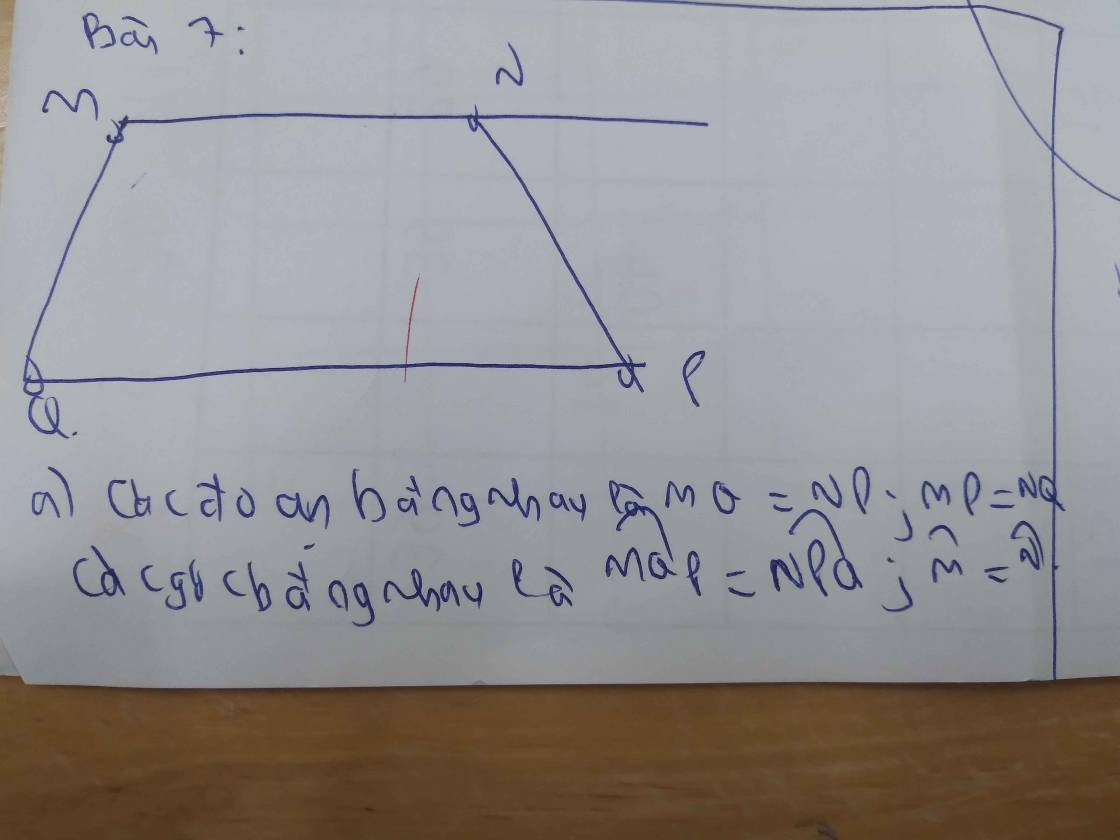 Bài 7:
M N
Q P
a) Các đoạn bằng nhau là MQ = NP; MP = NQ
Các góc bằng nhau là \widehat{MQP} = \widehat{NPQ}; \widehat{M} = \widehat{N}.